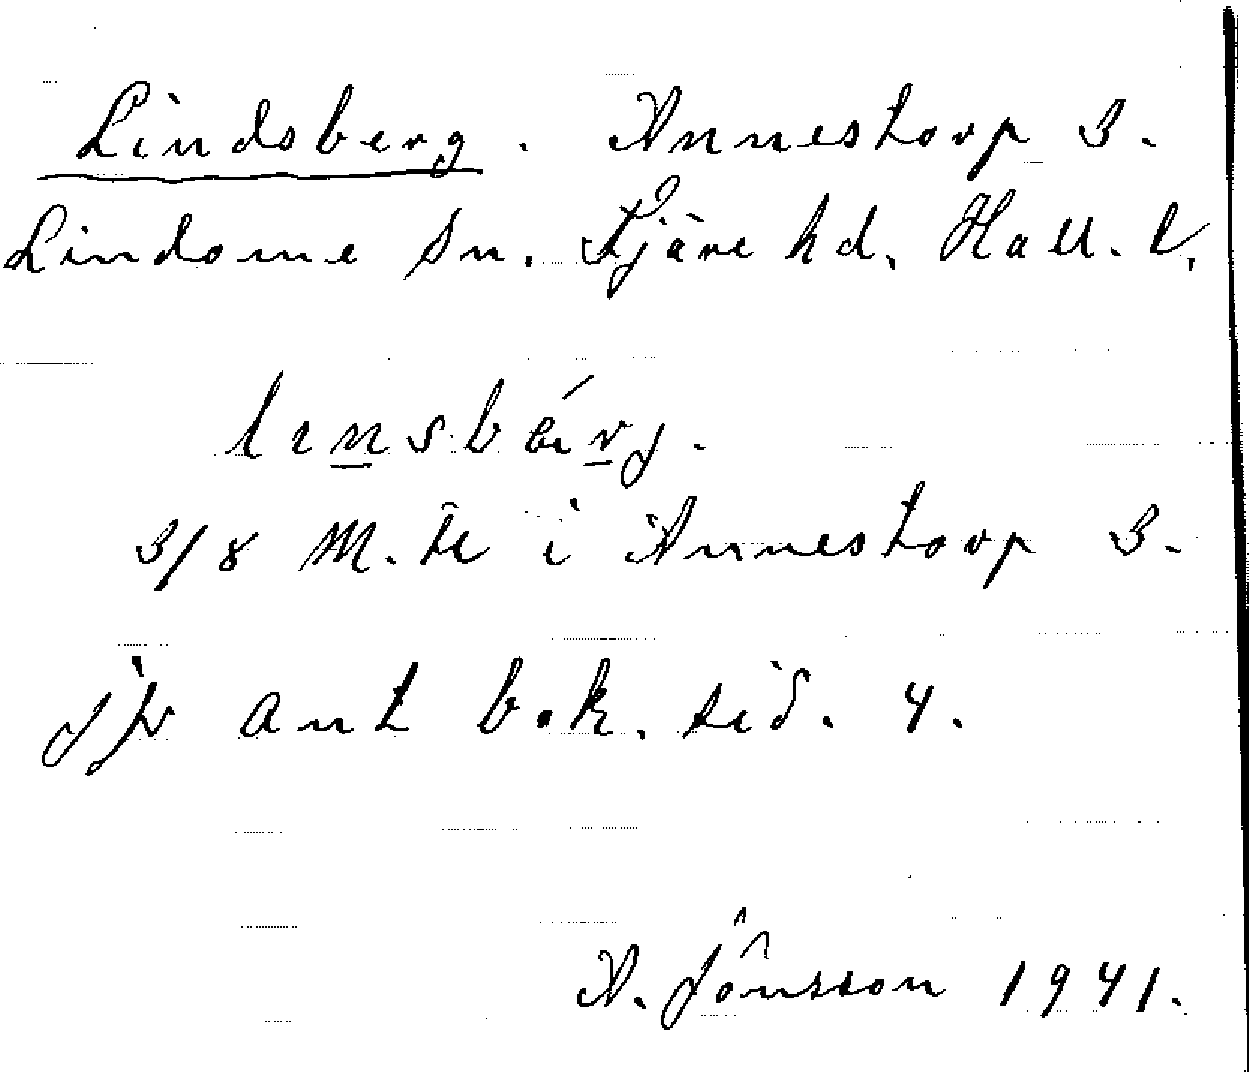 Lindsberg. Annestorp 3.
Lindome sn. Fjäre hd. Hall. l.
lɪnsbærj.
3/8 M. tl i Annestorp 3.
jfr ant bok. sid. 4.
A. Jönsson 1941.